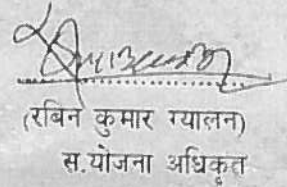 (रबिन कुमार ग्यालन)
स.योजना अधिकृत